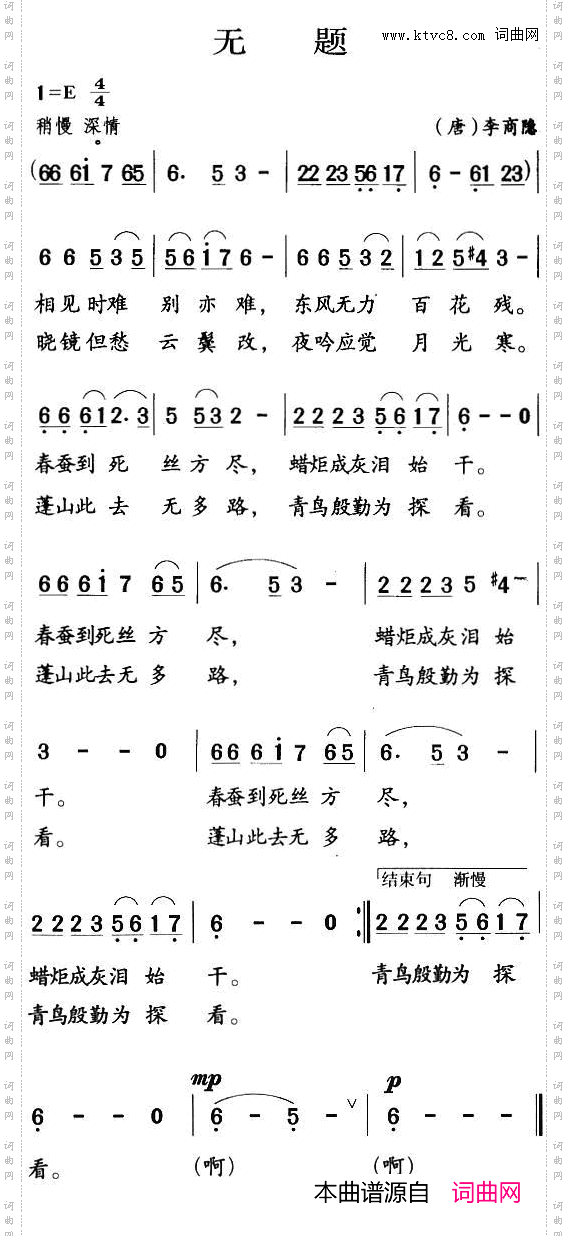 无 题 www.ktvc8.com 词曲网
1=E 4/4
稍慢 深情 (唐)李商隐
(66 6i 7 65 | 6. 5 3 - | 22 23 56 17 | 6 - 61 23)
6 6 5 3 5 | 5 6 i 7 6 - | 6 6 5 3 2 | 1 2 5 #4 3 -
相见时难 别亦难，东风无力 百花残。
晓镜但愁 云鬓改，夜吟应觉 月光寒。
6 6 6 1 2. 3 | 5 5 3 2 - | 2 2 2 3 5 6 1 7 | 6 - - 0
春蚕到死 丝方尽，蜡炬成灰泪始干。
蓬山此去 无多路，青鸟殷勤为探看。
6 6 6 i 7 6 5 | 6. 5 3 - | 2 2 2 3 5 #4 -
春蚕到死丝方 尽， 蜡炬成灰泪始
蓬山此去无多 路， 青鸟殷勤为探
3 - - 0 | 6 6 6 i 7 6 5 | 6. 5 3 -
干。 春蚕到死丝方 尽，
看。 蓬山此去无多 路，
结束句 渐慢
2 2 2 3 5 6 1 7 | 6 - - 0 :| 2 2 2 3 5 6 1 7
蜡炬成灰泪 始 干。 青鸟殷勤为 探
青鸟殷勤为 探 看。
mp p
6 - - 0 | 6 - 5 - ∨ | 6 - - -
看。 (啊) (啊)
本曲谱源自 词曲网